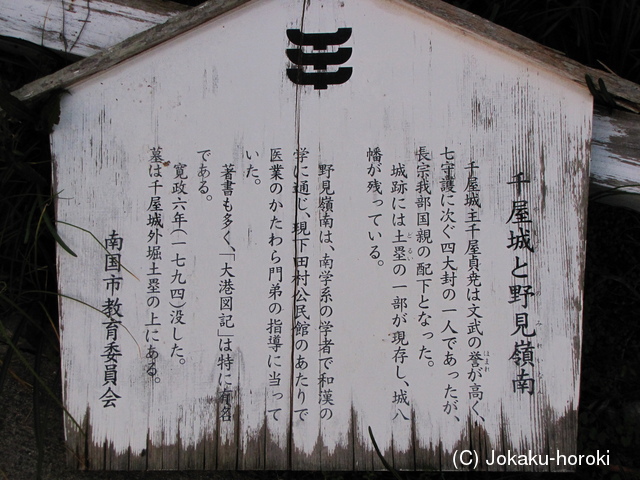 千屋城と野見嶺南
千屋城主千屋貞尭は文武の誉が高く、
七守護に次ぐ四大封の一人であったが、
長宗我部国親の配下となった。
城跡には土塁の一部が現存し、城八
幡が残っている。
野見嶺南は、南学系の学者で和漢の
学に通じ、現下田村公民館のあたりで
医業のかたわら門弟の指導に当って
いた。
著書も多く、「大港図記」は特に有名
である。
寛政六年(一七九四)没した。
墓は千屋城外堀土塁の上にある。
南国市教育委員会
(C) Jokaku-horoki